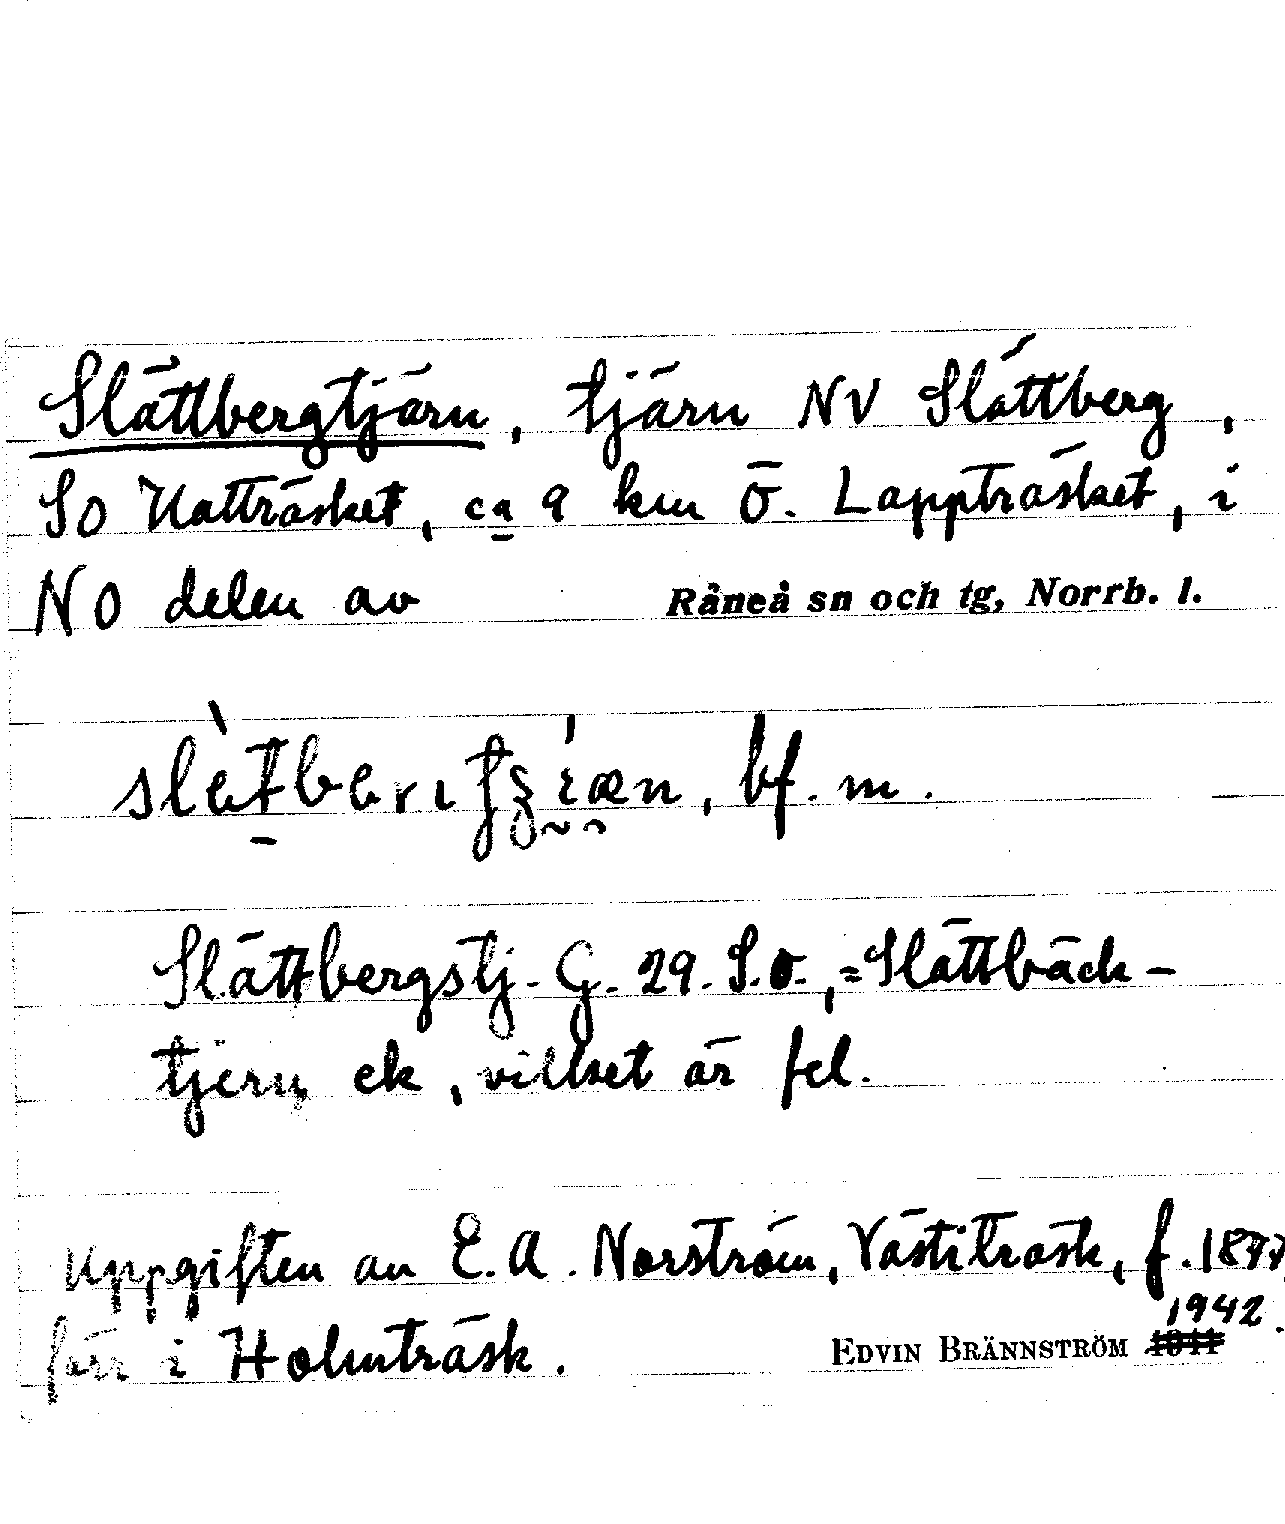 Slättbergtjärn, tjärn NV Slättberg,
SO Hatträsket, ca 9 km Ö. Lappträsket, i
NO delen av Råneå sn och tg, Norrb. l.
bf. m.
Slättbergstj. G. 29. S.O., = Slättbäck-
tjern ek, vilket är fel.
Uppgiften av E. A. Norström, Västiträsk, f. 1877
förr i Holmträsk.
1942.
EDVIN BRÄNNSTRÖM 1941